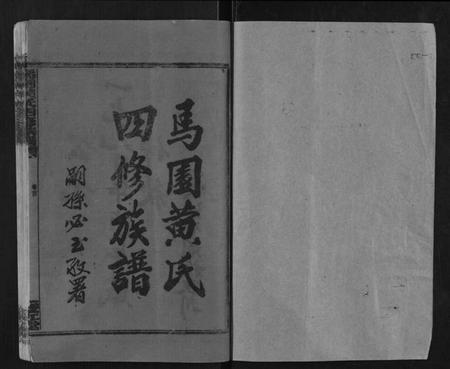 馬園黄氏
四修族譜
嗣孫必玉敬署
卷首